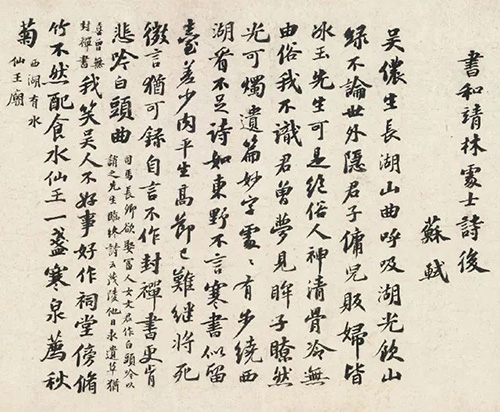 書和靖林處士詩後
蘇軾
吳儂生長湖山曲呼吸湖光飲山
綠不論世外隱君子傭兒販婦皆
冰玉先生可是絕俗人神清骨冷無
由俗我不識君曾夢見眸子瞭然
光可燭遺篇妙字處〻有步繞西
湖看不足詩如東野不言寒書似留
臺差少肉平生高節已難繼將死
微言猶可錄自言不作封禪書更肯
悲吟白頭曲
司馬長卿欲娶富人女文君作白頭吟以
誚之先生臨終詩云茂陵他日求遺草猶
喜曾無
封禪書
我笑吳人不好事好作祠堂傍脩
竹不然配食水仙王一盞寒泉薦秋
菊
西湖有水
仙王廟